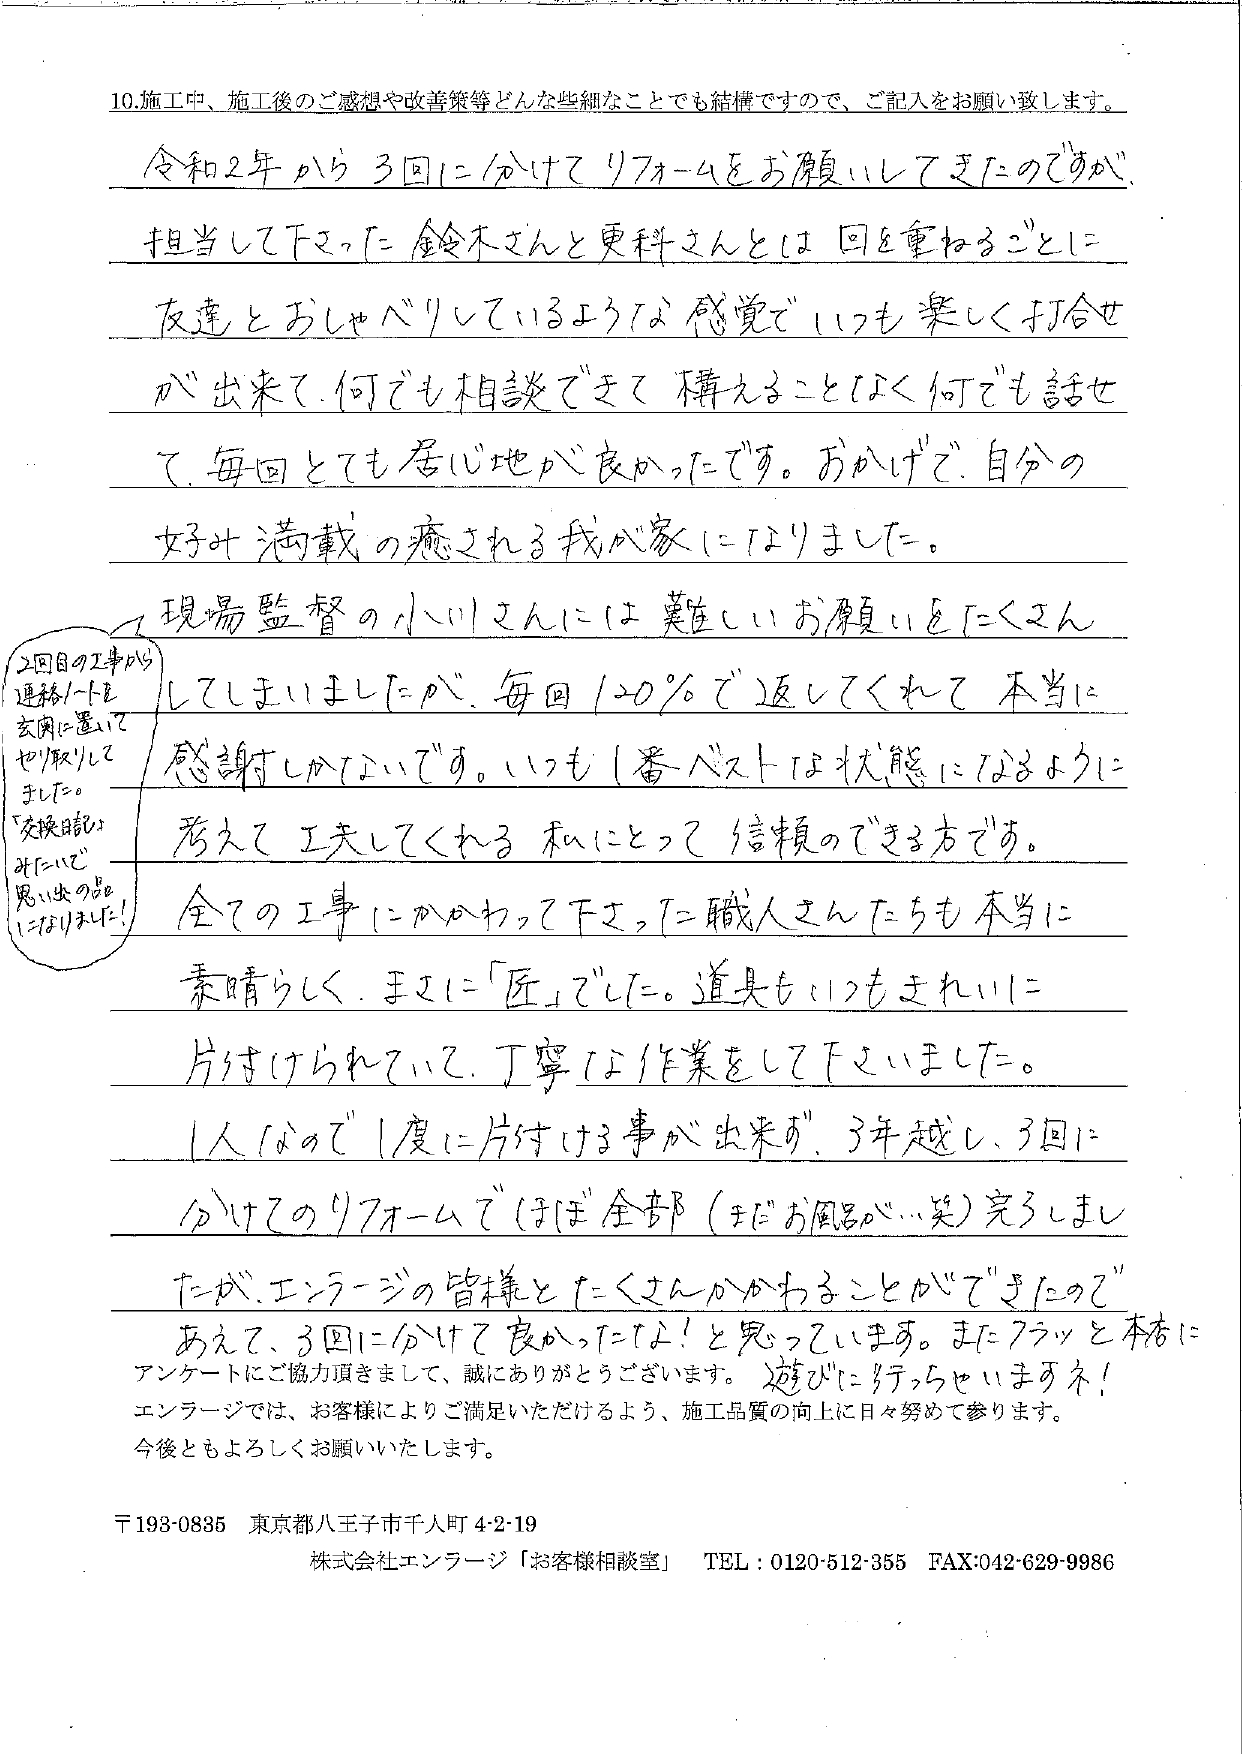 10.施工中、施工後のご感想や改善策等どんな些細なことでも結構ですので、ご記入をお願い致します。
令和2年から3回に分けてリフォームをお願いしてきたのですが、
担当して下さった鈴木さんと更科さんとは回を重ねるごとに
友達とおしゃべりしているような感覚でいつも楽しく打合せ
が出来て、何でも相談できて構えることなく何でも話せ
て、毎回とても居心地が良かったです。おかげで、自分の
好み満載の癒される我が家になりました。
現場監督の小川さんには難しいお願いをたくさん
してしまいましたが、毎回120%で返してくれて本当に
感謝しかないです。いつも1番ベストな状態になるように
考えて工夫してくれる私にとって信頼のできる方です。
2回目の工事から
連絡ノートを
玄関に置いて
やり取りして
ました。
「交換日記」
みたいで
思い出の品
になりました!
全ての工事にかかわって下さった職人さんたちも本当に
素晴らしく、まさに「匠」でした。道具もいつもきれいに
片付けられていて、丁寧な作業をして下さいました。
1人なので1度に片付ける事が出来ず、3年越し、3回に
分けてのリフォームでほぼ全部(まだお風呂が…笑)完了しまし
たが、エンラージの皆様とたくさんかかわることができたので
あえて、3回に分けて良かったな!と思っています。またフラッと本店に
遊びに行っちゃいますネ!
アンケートにご協力頂きまして、誠にありがとうございます。
エンラージでは、お客様によりご満足いただけるよう、施工品質の向上に日々努めて参ります。
今後ともよろしくお願いいたします。
〒193-0835 東京都八王子市千人町 4-2-19
株式会社エンラージ「お客様相談室」 TEL:0120-512-355 FAX:042-629-9986